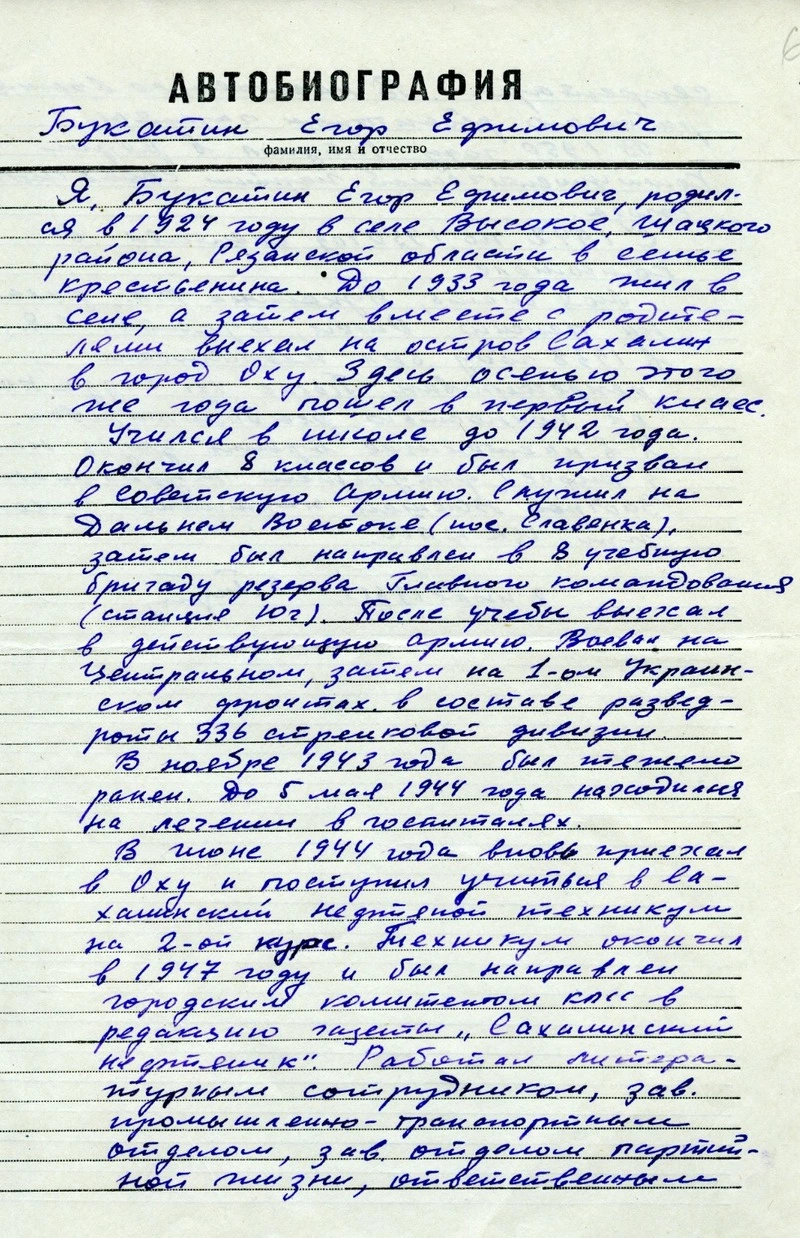 6
АВТОБИОГРАФИЯ
Букатин Егор Ефимович
фамилия, имя и отчество
Я, Букатин Егор Ефимович, родил-
ся в 1924 году в селе Высокое, Шацкого
района, Рязанской области в семье
крестьянина. До 1933 года жил в
селе, а затем вместе с родите-
лями выехал на остров Сахалин
в город Оху. Здесь осенью этого
же года пошел в первый класс.
Учился в школе до 1942 года.
Окончил 8 классов и был призван
в Советскую Армию. Служил на
Дальнем Востоке (пос. Славенка),
затем был направлен в 8 учебную
бригаду резерва Главного командования
(станция Юг). После учебы выехал
в действующую армию. Воевал на
Центральном, затем на 1-ом Украин-
ском фронтах в составе развед-
роты 336 стрелковой дивизии.
В ноябре 1943 года был тяжело
ранен. До 5 мая 1944 года находился
на лечении в госпиталях.
В июне 1944 года вновь приехал
в Оху и поступил учиться в Са-
халинский нефтяной техникум
на 2-ой курс. Техникум окончил
в 1947 году и был направлен
городским комитетом КПСС в
редакцию газеты „Сахалинский
нефтяник". Работал литера-
турным сотрудником, зав.
промышленно-транспортным
отделом, зав. отделом партий-
ной жизни, ответственным